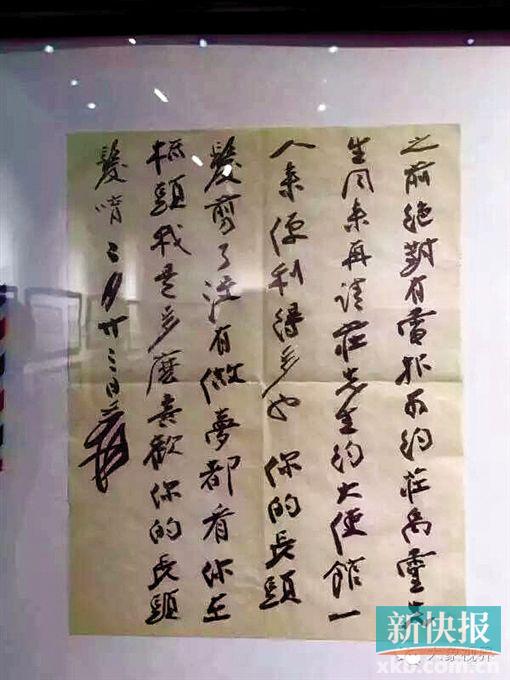 之前絕對有電报可約莊禹靈先
生同來再請莊先生約大使館一
人來便利得多也 你的長頭
髮剪了沒有做夢都看你在
梳頭我是多麼喜歡你的長頭
髮唷 二月廿三日 爰
新快报
大象视界
xkb.com.cn